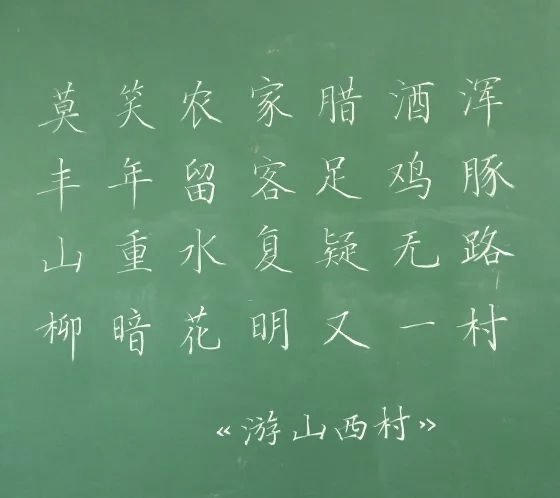 莫笑农家腊酒浑
丰年留客足鸡豚
山重水复疑无路
柳暗花明又一村
《游山西村》